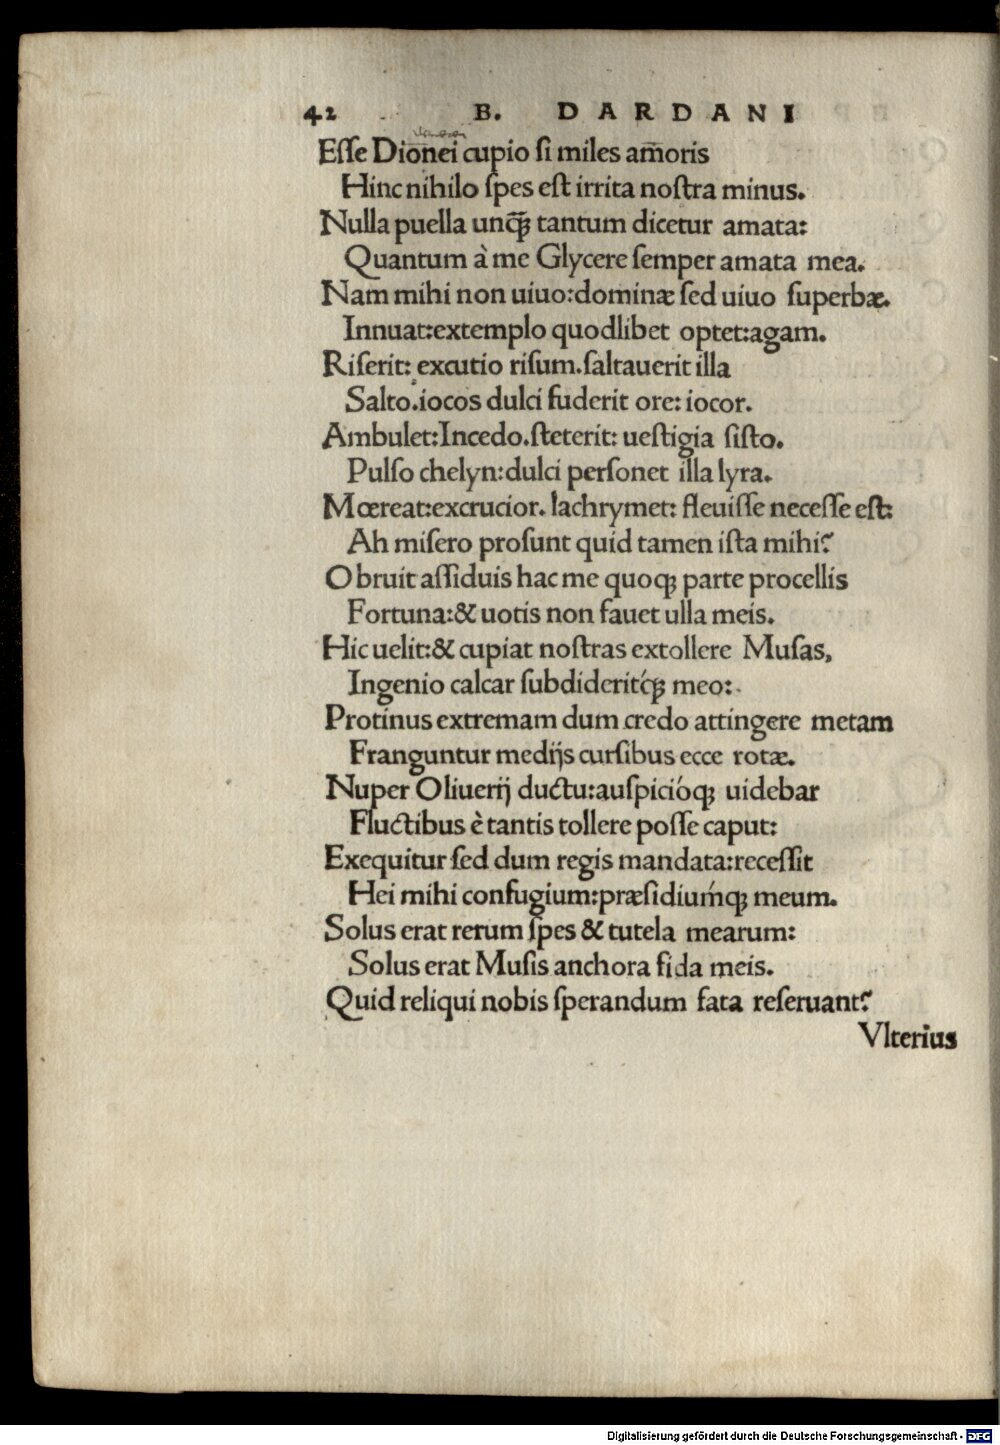 42 B. DARDANI
Eſſe Dionei cupio ſi miles am̃oris
Hinc nihilo ſpes eſt irrita noſtra minus.
Nulla puella unq̃ꝫ tantum dicetur amata:
Quantum à me Glycere ſemper amata mea.
Nam mihi non uiuo:dominæ ſed uiuo ſuperbæ.
Innuat:extemplo quodlibet optet:agam.
Riſerit: excutio riſum.ſaltauerit illa
Salto.iocos dulci fuderit ore: iocor.
Ambulet:Incedo.ſteterit: ueſtigia ſiſto.
Pulſo chelyn:dulci perſonet illa lyra.
Mœreat:excrucior. lachrymet: fleuiſſe neceſſe eſt:
Ah miſero proſunt quid tamen iſta mihi?
Obruit aſſiduis hac me quoqꝫ parte procellis
Fortuna:& uotis non fauet ulla meis.
Hic uelit:& cupiat noſtras extollere Muſas,
Ingenio calcar ſubdiderit́qꝫ meo:
Protinus extremam dum credo attingere metam
Franguntur medijs curſibus ecce rotæ.
Nuper Oliuerij ductu:auſpicióqꝫ uidebar
Fluctibus è tantis tollere poſſe caput:
Exequitur ſed dum regis mandata:receſſit
Hei mihi confugium:præſidiuḿqꝫ meum.
Solus erat rerum ſpes & tutela mearum:
Solus erat Muſis anchora fida meis.
Quid reliqui nobis ſperandum fata reſeruant?
Vlterius
Digitalisierung gefördert durch die Deutsche Forschungsgemeinschaft - DFG